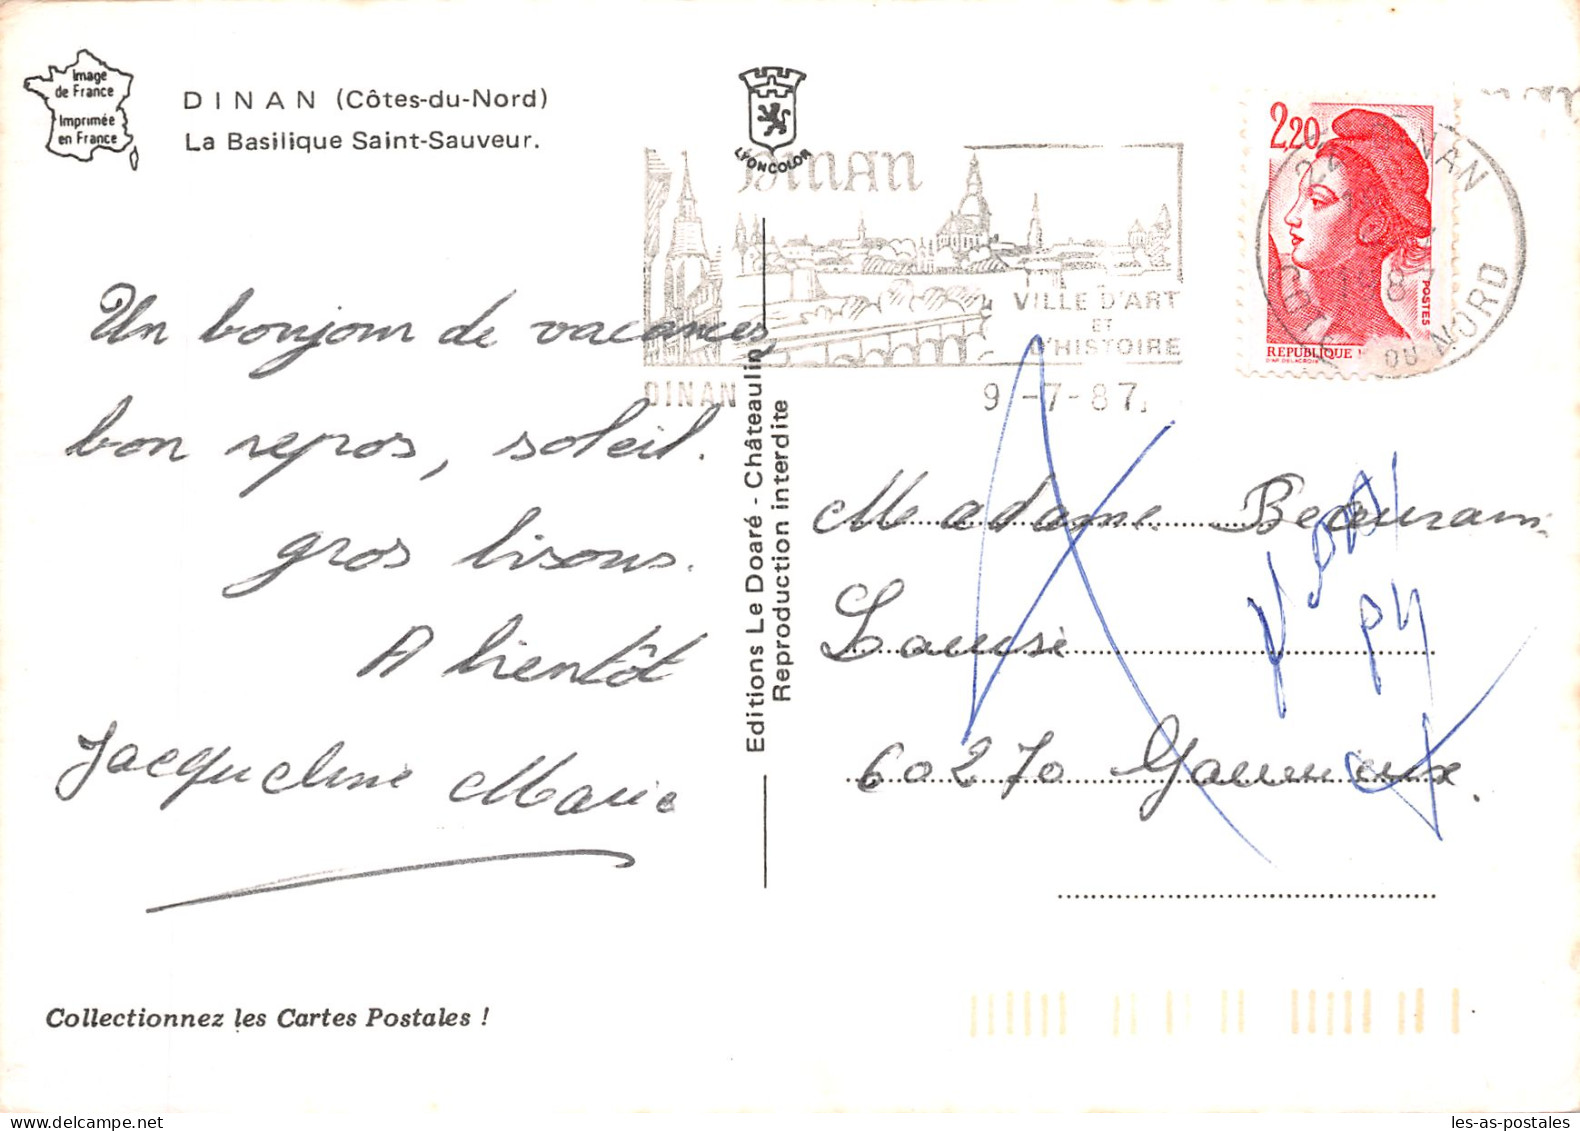 Image
de France
Imprimée
en France
DINAN (Côtes-du-Nord)
La Basilique Saint-Sauveur.
LYONCOLOR
DINAN
VILLE D'ART
ET
D'HISTOIRE
DINAN
9-7-87
2,20
REPUBLIQUE
POSTES
DINAN
DU NORD
Un bonjour de vacances,
bon repos, soleil.
gros bisous.
A bientôt
Jacqueline Marie
Editions Le Doaré - Châteaulin
Reproduction interdite
Madame Beaurain
Louise
60270 Gouvieux.
Collectionnez les Cartes Postales !
les-as-postales